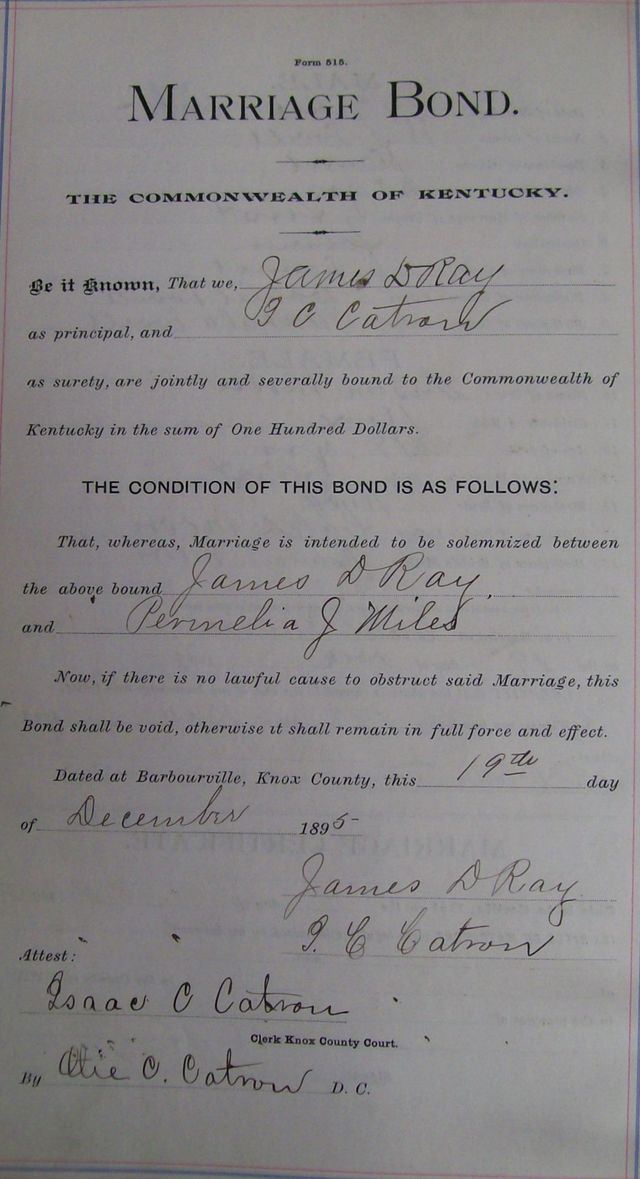 Form 515.
MARRIAGE BOND.
THE COMMONWEALTH OF KENTUCKY.
Be it Known, That we, James D Ray
as principal, and I C Catron
as surety, are jointly and severally bound to the Commonwealth of
Kentucky in the sum of One Hundred Dollars.
THE CONDITION OF THIS BOND IS AS FOLLOWS:
That, whereas, Marriage is intended to be solemnized between
the above bound James D Ray,
and Permelia J Miles
Now, if there is no lawful cause to obstruct said Marriage, this
Bond shall be void, otherwise it shall remain in full force and effect.
Dated at Barbourville, Knox County, this 19th day
of December 1895
James D Ray
I. C Catron
Attest:
Isaac C Catron
Clerk Knox County Court.
By Otie C. Catron D. C.